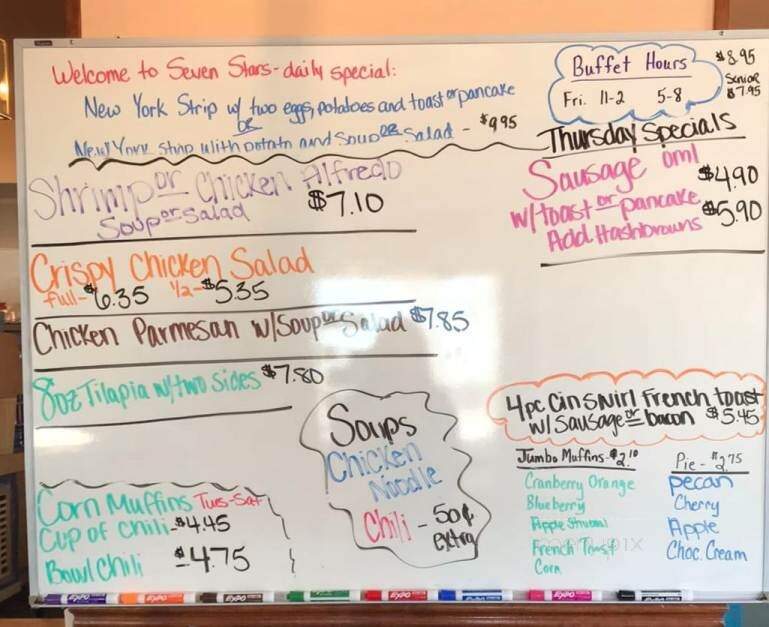 Welcome to Seven Stars-daily special:
New York Strip w/ two eggs, potatoes and toast or pancake
or
New York Strip with potato and soup or salad - $9.95
Shrimp or Chicken Alfredo
Soup or salad $7.10
Crispy Chicken Salad
full-$6.35 1/2-$5.35
Chicken Parmesan w/Soup or Salad $7.85
8oz Tilapia w/two sides $7.80
Corn Muffins Tues-Sat
Cup of chili-$4.45
Bowl Chili $4.75
Soups
Chicken
Noodle
Chili - 50¢
extra
Buffet Hours
Fri. 11-2 5-8
$8.95
Senior
$7.95
Thursday Specials
Sausage oml $4.90
w/toast or pancake
Add Hashbrowns $5.90
4pc Cin Swirl French toast
w/ Sausage or bacon $5.45
Jumbo Muffins-$2.10
Cranberry Orange
Blueberry
Apple Strusel
French Toast
Corn
Pie-$2.75
pecan
Cherry
Apple
Choc. Cream
EXPO
EXPO
EXPO
EXPO
EXPO
EXPO
EXPO